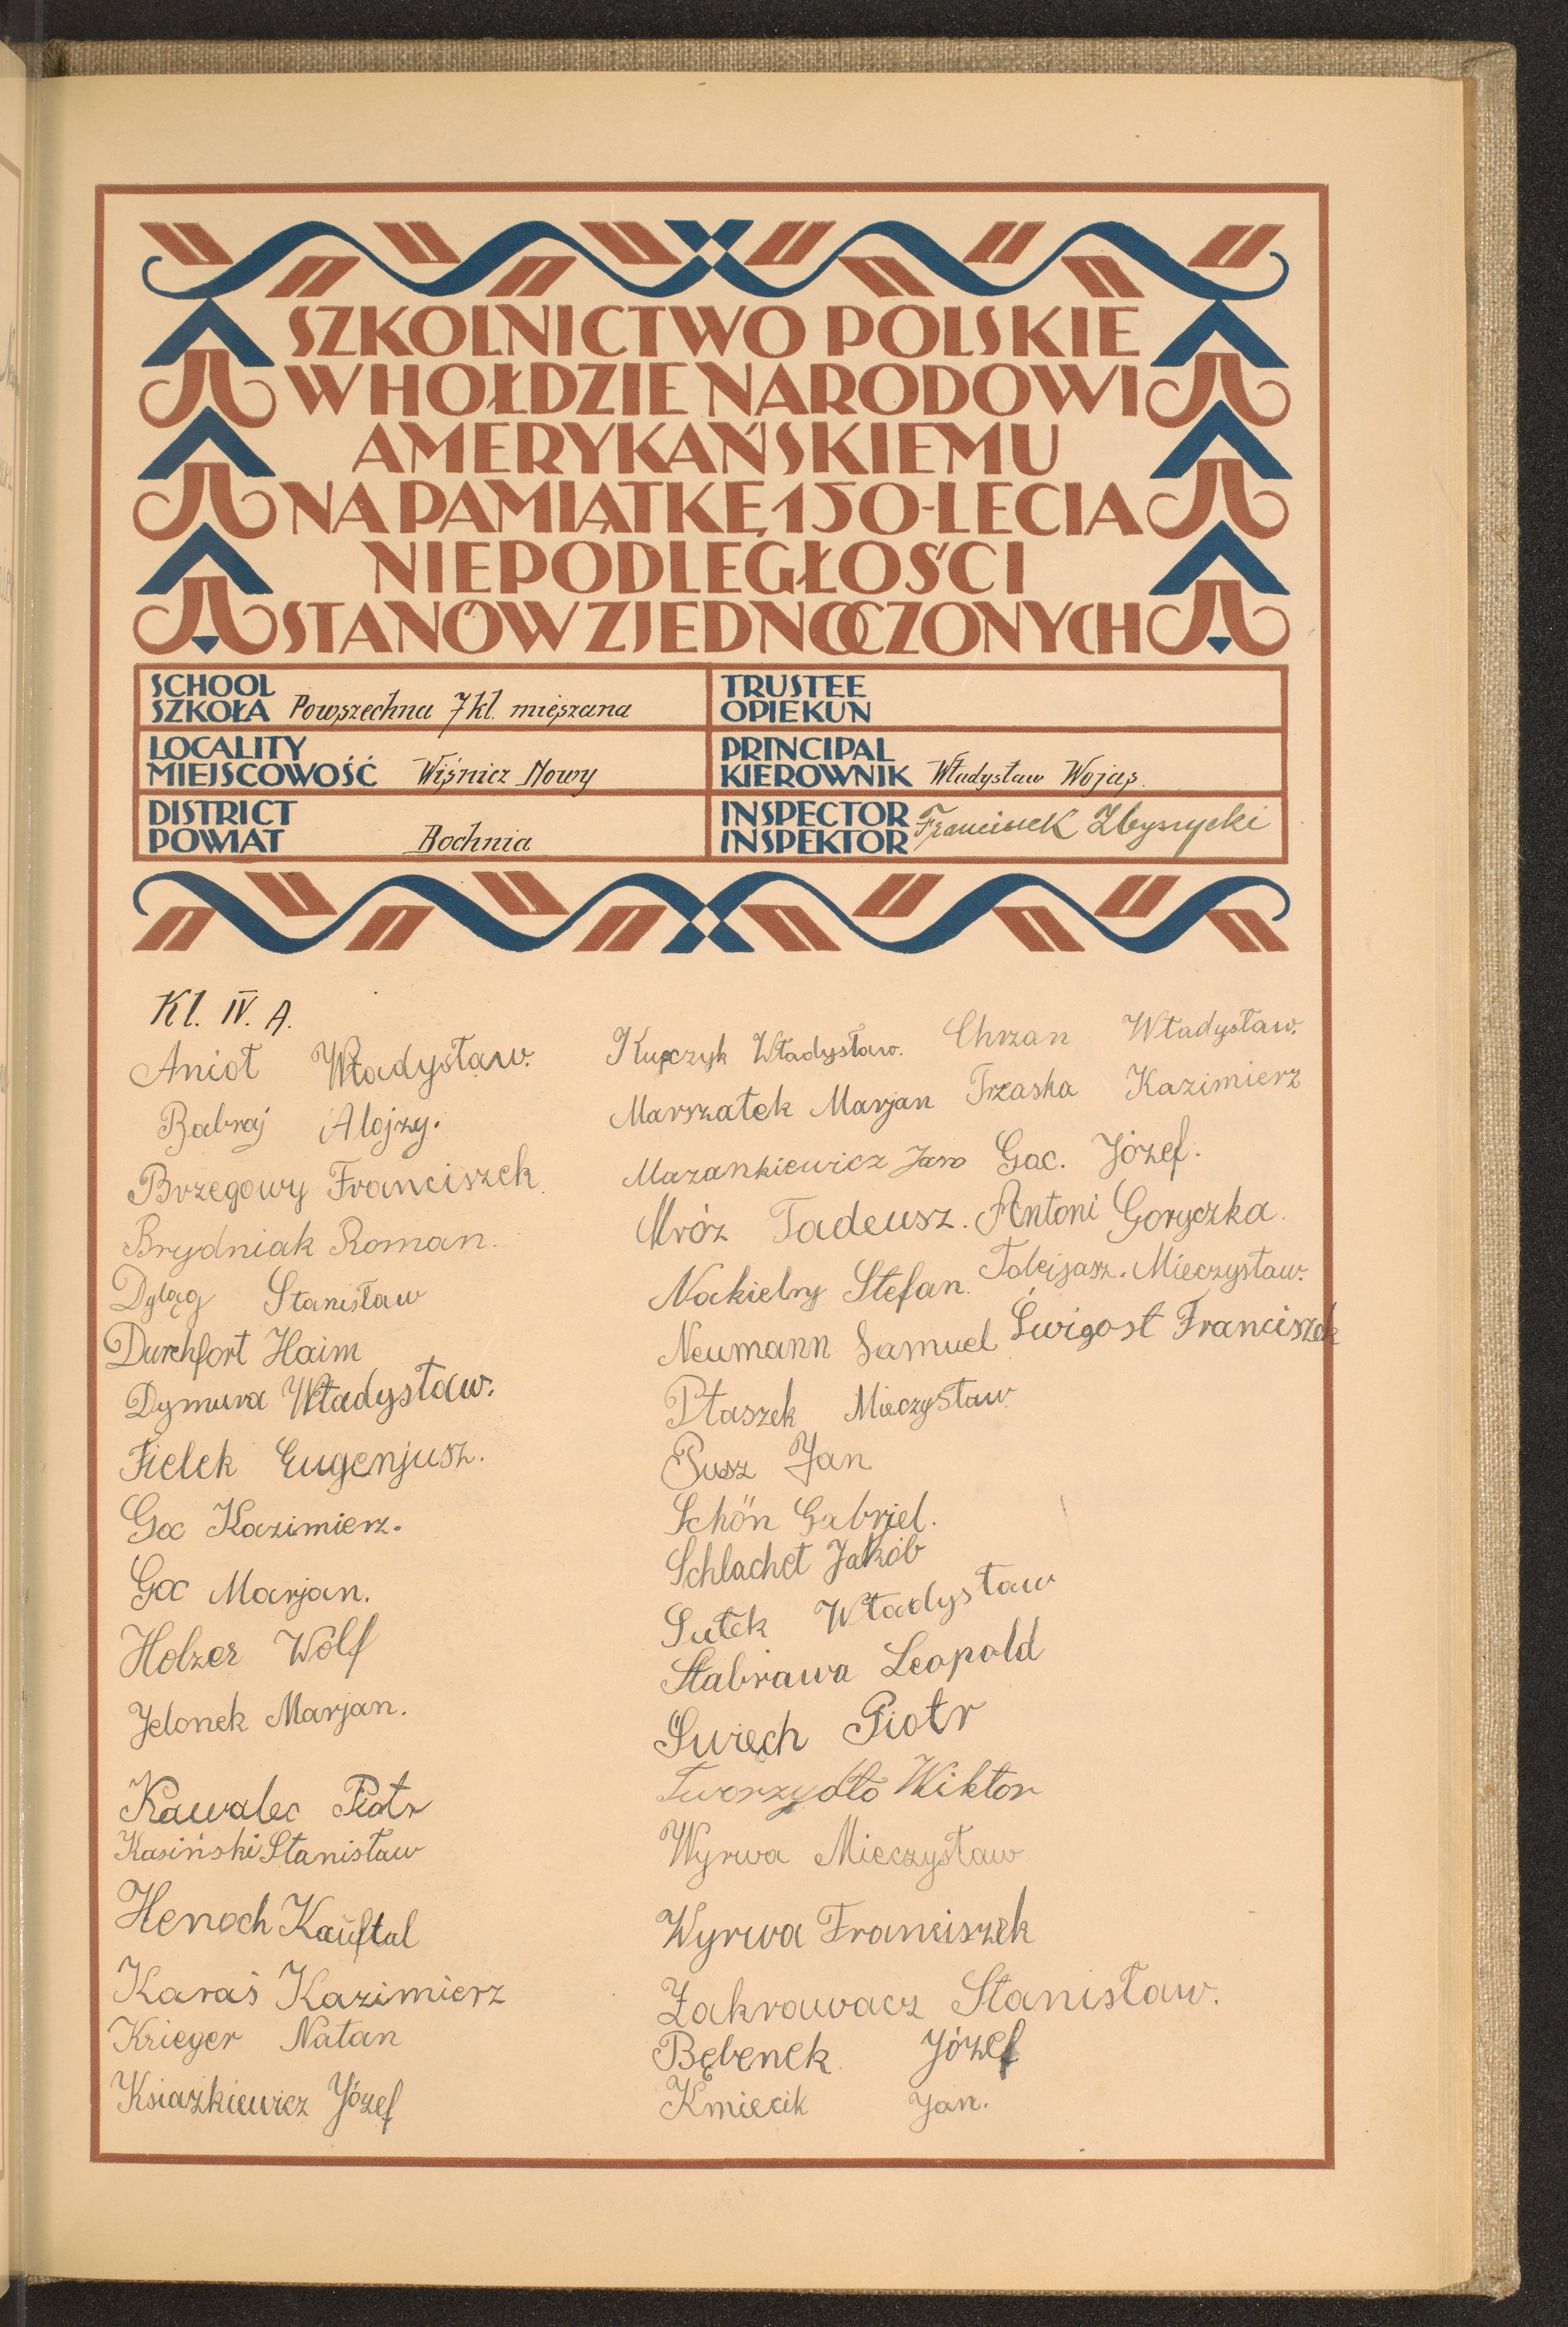 SZKOLNICTWO POLSKIE
W HOŁDZIE NARODOWI
AMERYKAŃSKIEMU
NA PAMIĄTKĘ 150-LECIA
NIEPODLEGŁOŚCI
STANÓW ZJEDNOCZONYCH
SCHOOL
SZKOŁA Powszechna 7 kl. mieszana
TRUSTEE
OPIEKUN
LOCALITY
MIEJSCOWOŚĆ Wiśnicz Nowy
PRINCIPAL
KIEROWNIK Władysław Wojas
DISTRICT
POWIAT Bochnia
INSPECTOR
INSPEKTOR Franciszek
Kl. IV. A.
Anioł Władysław.
Babraj Alojzy.
Brzegowy Franciszek.
Brydniak Roman.
Dyląg Stanisław
Durchfort Haim
Dymura Władysław.
Fielek Eugenjusz.
Goc Kazimierz.
Goc Marjan.
Holzer Wolf
Jelonek Marjan.
Kawalec Piotr
Kasiński Stanisław
Henoch Kauftal
Karaś Kazimierz
Krieger Natan
Ksiażkiewicz Józef
Kupczyk Władysław.
Marszałek Marjan
Mazankiewicz Jan
Mróz Tadeusz.
Nakielny Stefan.
Neumann Samuel
Ptaszek Mieczysław
Pusz Jan
Schön Gabrjel.
Schlachet Jakób
Sułek Władysław
Stabrawa Leopold
Świech Piotr
Tworzydło Wiktor
Wyrwa Mieczysław
Wyrwa Franciszek
Zakrawacz Stanisław.
Bębenek Józef
Kmiecik Jan.
Chrzan Władysław.
Trzaska Kazimierz
Gac. Józef.
Antoni Goryczka.
Mieczysław.
Świgost Franciszek